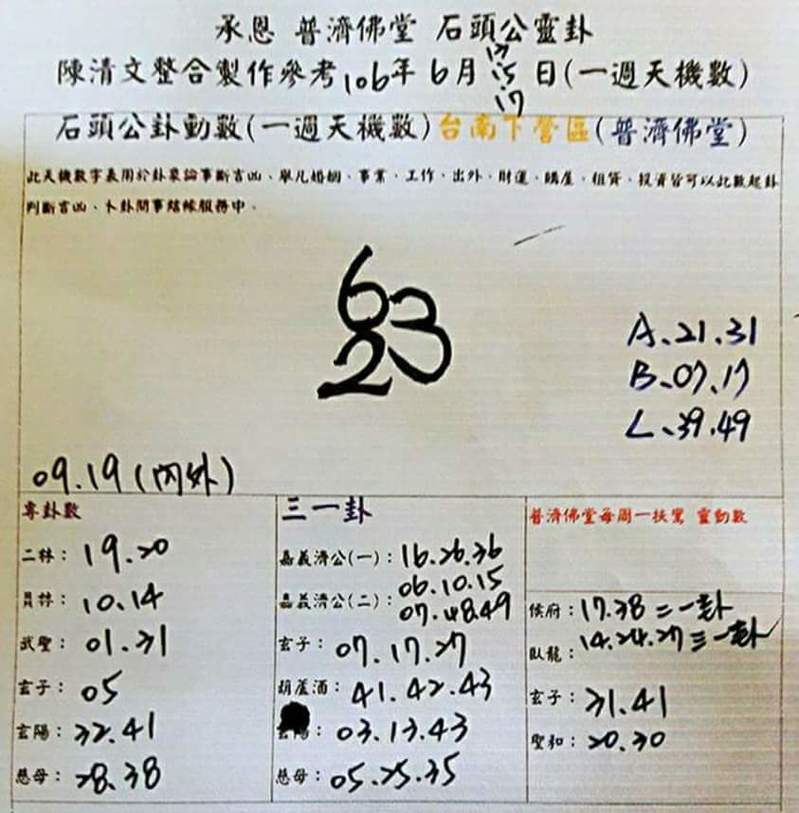 承恩 普濟佛堂 石頭公靈卦
陳清文整合製作參考106年6月13.15.17日(一週天機數)
石頭公卦動數(一週天機數)台南下營區(普濟佛堂)
此天機數字表用於卦象論事斷吉凶、舉凡婚姻、事業、工作、出外、財運、購屋、租賃、投資皆可以此數起卦
判斷吉凶、卜卦問事結緣服務中。
63
2
A、21.31
B、07.17
L、39.49
09.19(內外)
專卦數
二林：19.20
員林：10.14
武聖：01.31
玄子：05
玄陽：32.41
慈母：28.38
三一卦
嘉義濟公(一)：16.26.36
嘉義濟公(二)：06.10.15
07.48.49
玄子：07.17.27
葫蘆酒：41.42.43
03.13.43
慈母：05.25.35
普濟佛堂每周一扶鸞 靈動數
侯府：17.38 二一卦
臥龍：14.24.27 三一卦
玄子：31.41
聖和：20.30